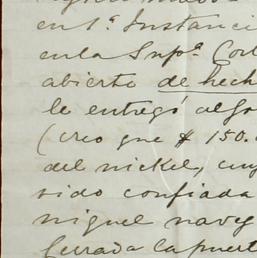 en 1ª Instanci
en la Supª Cort
abierto de hech
le entregó al Go
(creo que $ 150.
del nickel, cuy
sido confiada
miguel nave
Cerrada la puert